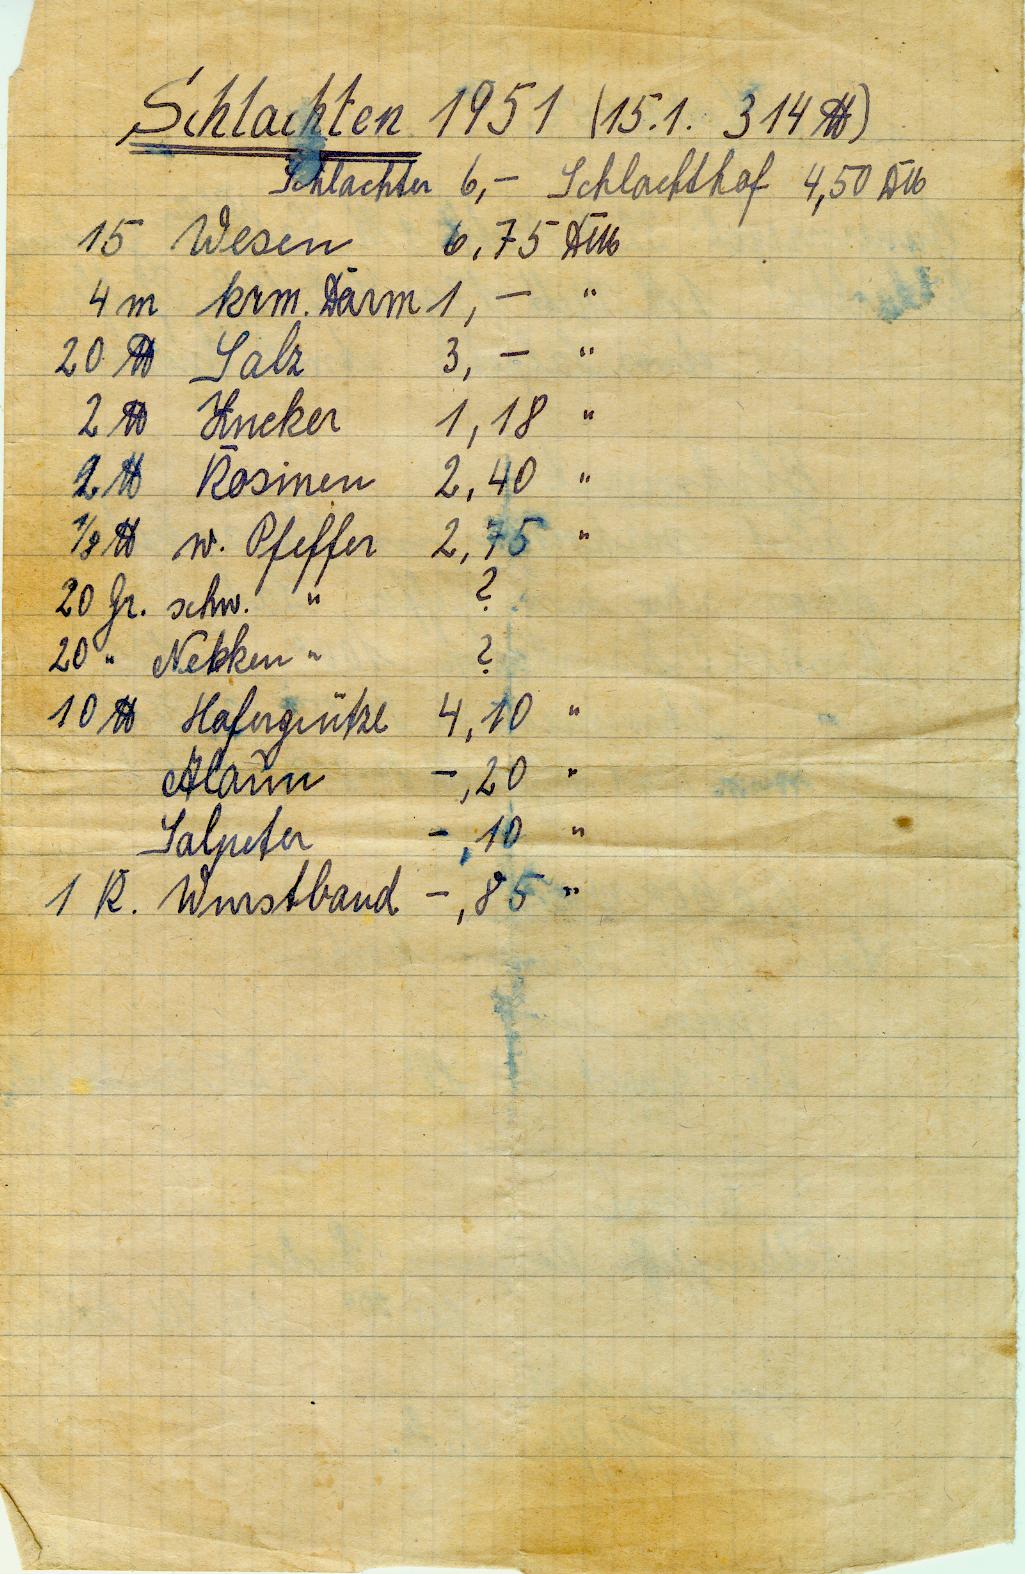 Schlachten 1951 (15.1. 314 ℔)
Schlachter 6,- Schlachthof 4,50 DM
15 Wesen 6,75 DM
4 m krm. Därm 1,- "
20 ℔ Salz 3,- "
2 ℔ Zucker 1,18 "
2 ℔ Rosinen 2,40 "
1/2 ℔ w. Pfeffer 2,75 "
20 Gr. schw. " ?
20 " Nelken " ?
10 ℔ Hafergrütze 4,10 "
Alaun -,20 "
Salpeter -,10 "
1 R. Wurstband -,85 "